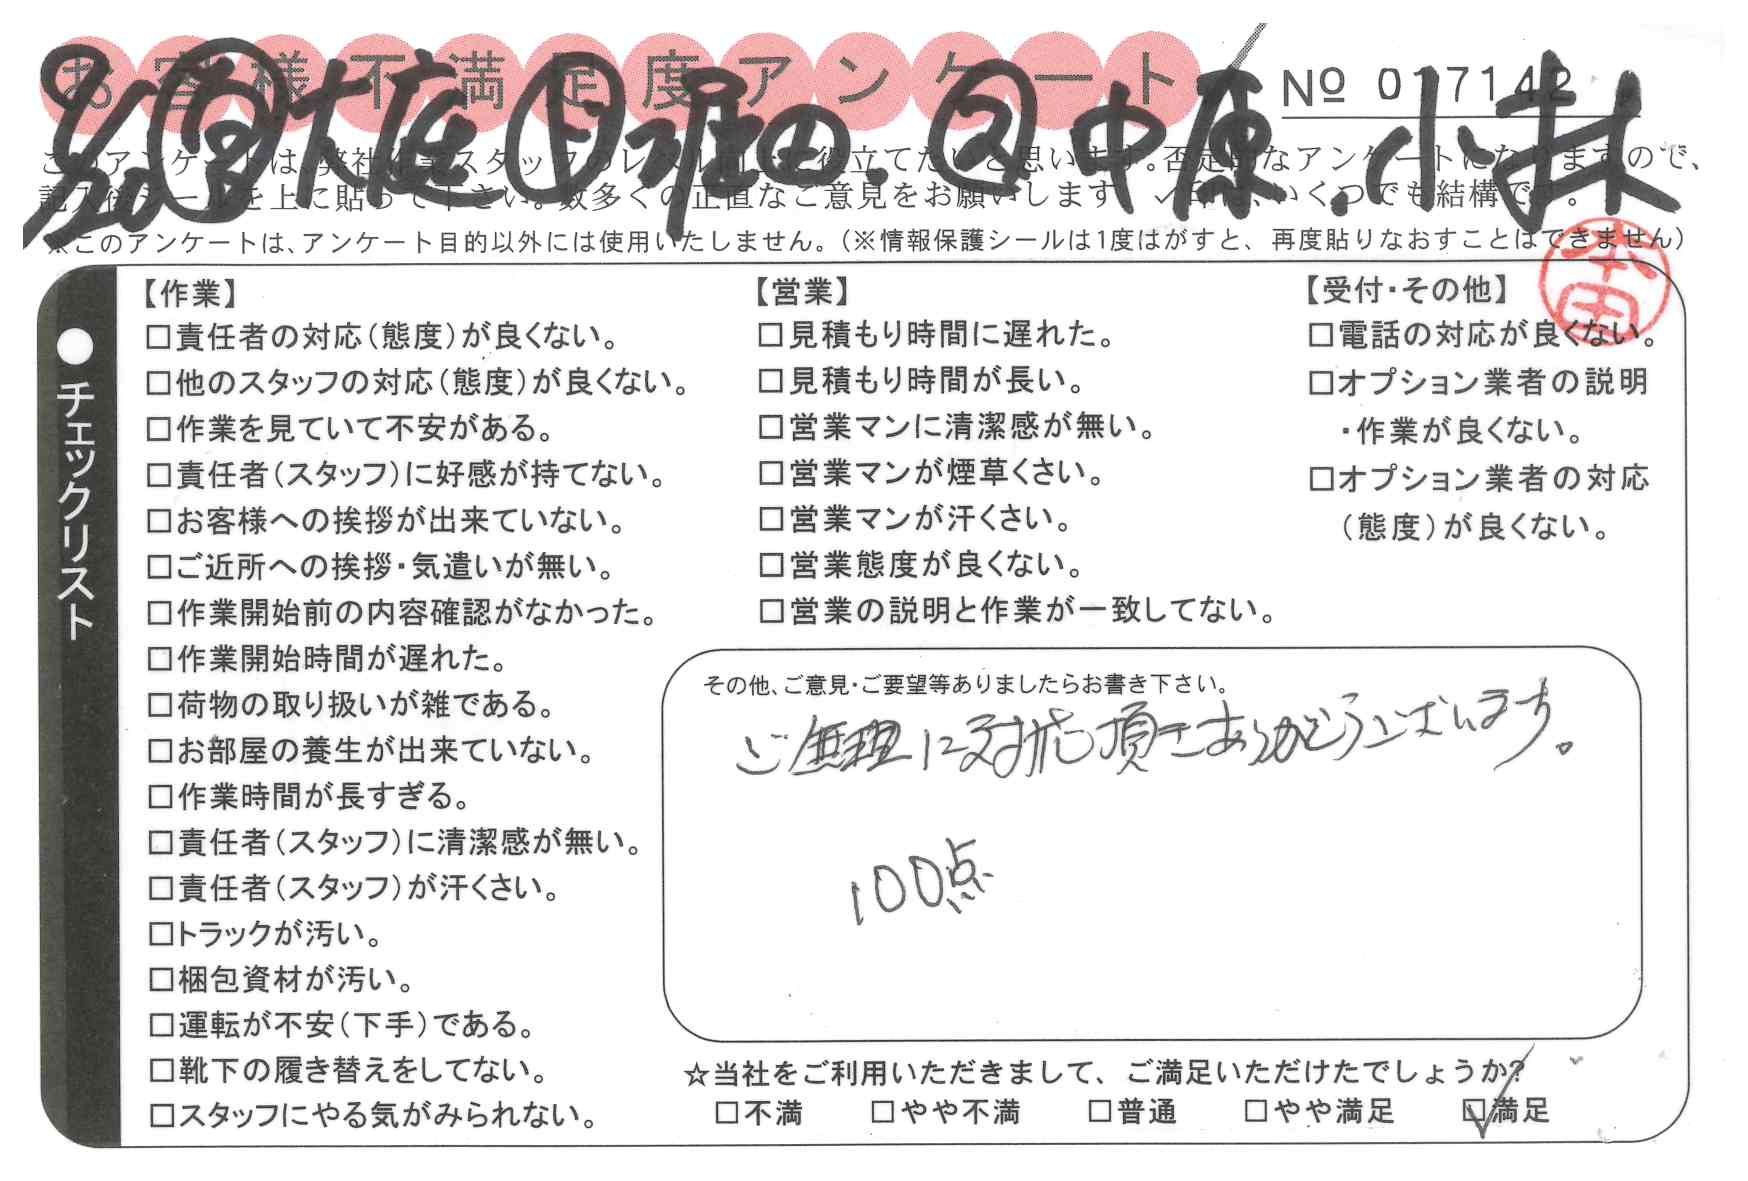 お客様不満足度アンケート
No 017142
9/20 営 大庭 ド 堀田. 中原、小林
このアンケートは、弊社作業スタッフのレベル向上に役立てたいと思います。否定的なアンケートになりますので、
記入後シールを上に貼って下さい。数多くの正直なご意見をお願いします ✓印は、いくつでも結構です。
※このアンケートは、アンケート目的以外には使用いたしません。（※情報保護シールは1度はがすと、再度貼りなおすことはできません）
本田
●チェックリスト
【作業】
□責任者の対応（態度）が良くない。
□他のスタッフの対応（態度）が良くない。
□作業を見ていて不安がある。
□責任者（スタッフ）に好感が持てない。
□お客様への挨拶が出来ていない。
□ご近所への挨拶・気遣いが無い。
□作業開始前の内容確認がなかった。
□作業開始時間が遅れた。
□荷物の取り扱いが雑である。
□お部屋の養生が出来ていない。
□作業時間が長すぎる。
□責任者（スタッフ）に清潔感が無い。
□責任者（スタッフ）が汗くさい。
□トラックが汚い。
□梱包資材が汚い。
□運転が不安（下手）である。
□靴下の履き替えをしてない。
□スタッフにやる気がみられない。
【営業】
□見積もり時間に遅れた。
□見積もり時間が長い。
□営業マンに清潔感が無い。
□営業マンが煙草くさい。
□営業マンが汗くさい。
□営業態度が良くない。
□営業の説明と作業が一致してない。
【受付・その他】
□電話の対応が良くない。
□オプション業者の説明
・作業が良くない。
□オプション業者の対応
（態度）が良くない。
その他、ご意見・ご要望等ありましたらお書き下さい。
ご無理に対応頂きありがとうございます。
100点
☆当社をご利用いただきまして、ご満足いただけたでしょうか?
□不満 □やや不満 □普通 □やや満足 ☑満足